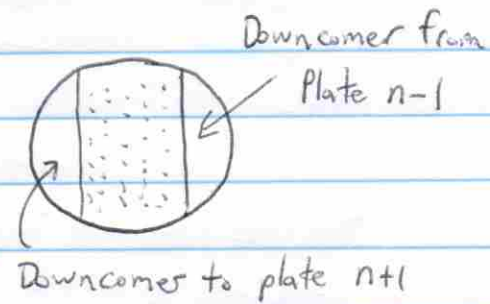 Downcomer from
Plate n-1
Downcomer to plate n+1